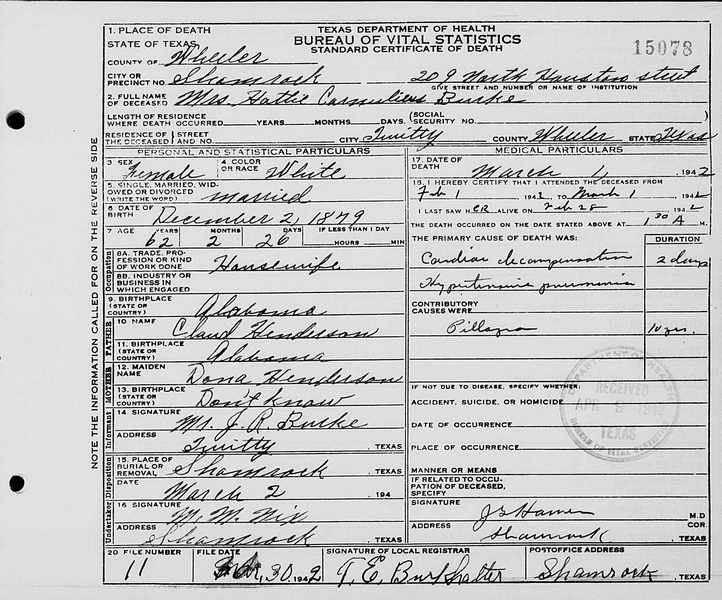 TEXAS DEPARTMENT OF HEALTH
BUREAU OF VITAL STATISTICS
STANDARD CERTIFICATE OF DEATH
15078
1. PLACE OF DEATH
STATE OF TEXAS
COUNTY OF Wheeler
CITY OR PRECINCT NO. Shamrock 209 North Houston street
GIVE STREET AND NUMBER OR NAME OF INSTITUTION
2. FULL NAME OF DECEASED Mrs Hattie Burke
LENGTH OF RESIDENCE WHERE DEATH OCCURRED YEARS MONTHS DAYS (SOCIAL SECURITY NO.
RESIDENCE OF THE DECEASED STREET AND NO. CITY Twitty COUNTY Wheeler STATE Texas
PERSONAL AND STATISTICAL PARTICULARS
3 SEX Female 4 COLOR OR RACE White
5 SINGLE, MARRIED, WIDOWED OR DIVORCED (WRITE THE WORD) married
6 DATE OF BIRTH December 2, 1879
7 AGE 62 YEARS 2 MONTHS 26 DAYS IF LESS THAN 1 DAY HOURS MIN.
Occupation
8A. TRADE, PROFESSION OR KIND OF WORK DONE Housewife
8B. INDUSTRY OR BUSINESS IN WHICH ENGAGED
9 BIRTHPLACE (STATE OR COUNTRY) Alabama
FATHER
10 NAME Claud Henderson
11. BIRTHPLACE (STATE OR COUNTRY) Alabama
MOTHER
12. MAIDEN NAME Dona Henderson
13. BIRTHPLACE (STATE OR COUNTRY) Don't know
Informant
14 SIGNATURE Mr. J. R. Burke
ADDRESS Twitty, TEXAS
Disposition
15. PLACE OF BURIAL OR REMOVAL Shamrock, TEXAS
DATE March 2 194
Undertaker
16 SIGNATURE M. M. Nix
ADDRESS Shamrock, TEXAS
MEDICAL PARTICULARS
17. DATE OF DEATH March 1, 1942
18. I HEREBY CERTIFY THAT I ATTENDED THE DECEASED FROM
Feb 1 1942 TO March 1 1942
I LAST SAW HER ALIVE ON Feb 28 1942
THE DEATH OCCURRED ON THE DATE STATED ABOVE AT 1:30 A M.
THE PRIMARY CAUSE OF DEATH WAS: DURATION
Cardiac decompensation 2 days
pneumonia
CONTRIBUTORY CAUSES WERE:
Pillagra 10 yrs.
IF NOT DUE TO DISEASE, SPECIFY WHETHER:
ACCIDENT, SUICIDE, OR HOMICIDE
DATE OF OCCURRENCE
PLACE OF OCCURRENCE
MANNER OR MEANS
IF RELATED TO OCCUPATION OF DECEASED, SPECIFY
SIGNATURE M.D
ADDRESS Shamrock COR. , TEXAS
DEPARTMENT OF HEALTH
RECEIVED
TEXAS
BUREAU OF VITAL STATISTICS
20 FILE NUMBER 11
FILE DATE 30, 1942
SIGNATURE OF LOCAL REGISTRAR T. E. Burkhalter
POSTOFFICE ADDRESS Shamrock, TEXAS
NOTE THE INFORMATION CALLED FOR ON THE REVERSE SIDE